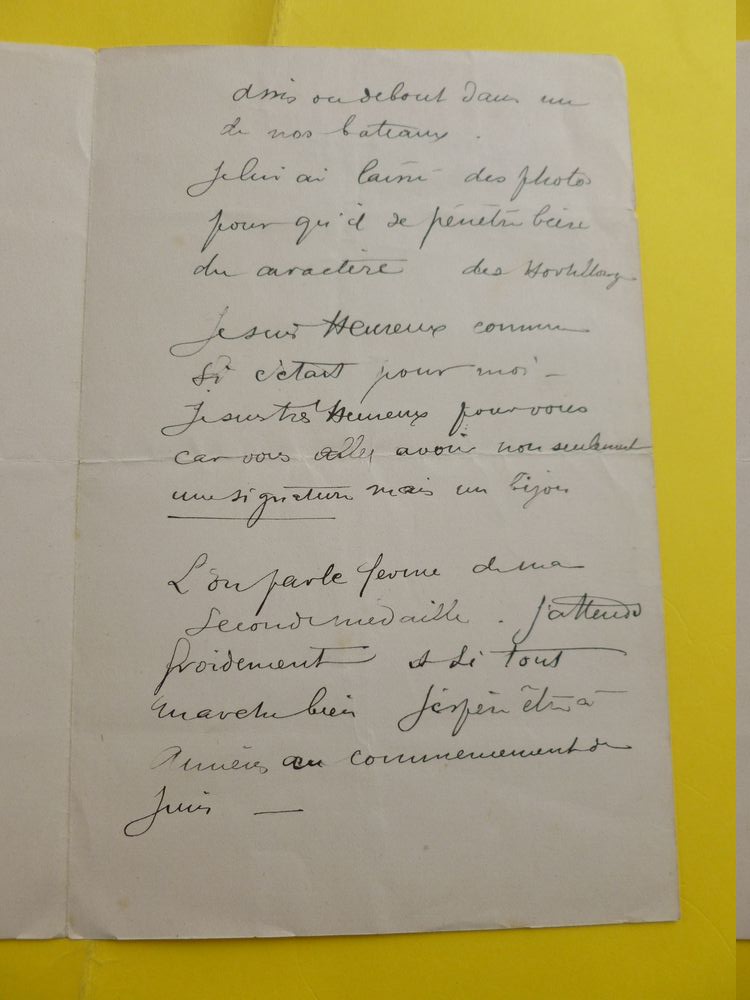 assis ou debout dans un
de nos bateaux.
Je lui ai laissé des photos
pour qu'il se pénètre bien
du caractère des
Je suis Heureux comme
si c'était pour moi -
Je suis très Heureux pour vous
car vous allez avoir non seulement
une signature mais un bijou
L'on parle ferme de ma
Seconde médaille. J'attends
froidement et si tout
marche bien j'espère être à
Asnières au commencement de
Juin —